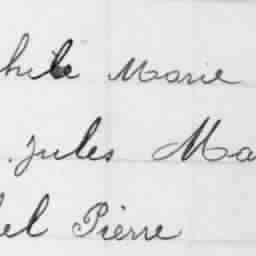 hile Marie
Jules Ma
el Pierre